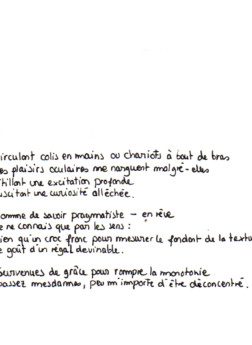 irculant colis en mains ou chariots à bout de bras
es plaisirs oculaires me narguent malgré-elles
tillant une excitation profonde
uscitant une curiosité alléchée.
omme de savoir pragmatiste – en rêve
e ne connais que par les sens :
ien qu'un croc franc pour mesurer le fondant de la textu
e goût d'un régal devinable.
Survenues de grâce pour rompre la monotonie
passez mesdames, peu m'importe d'être déconcentré.